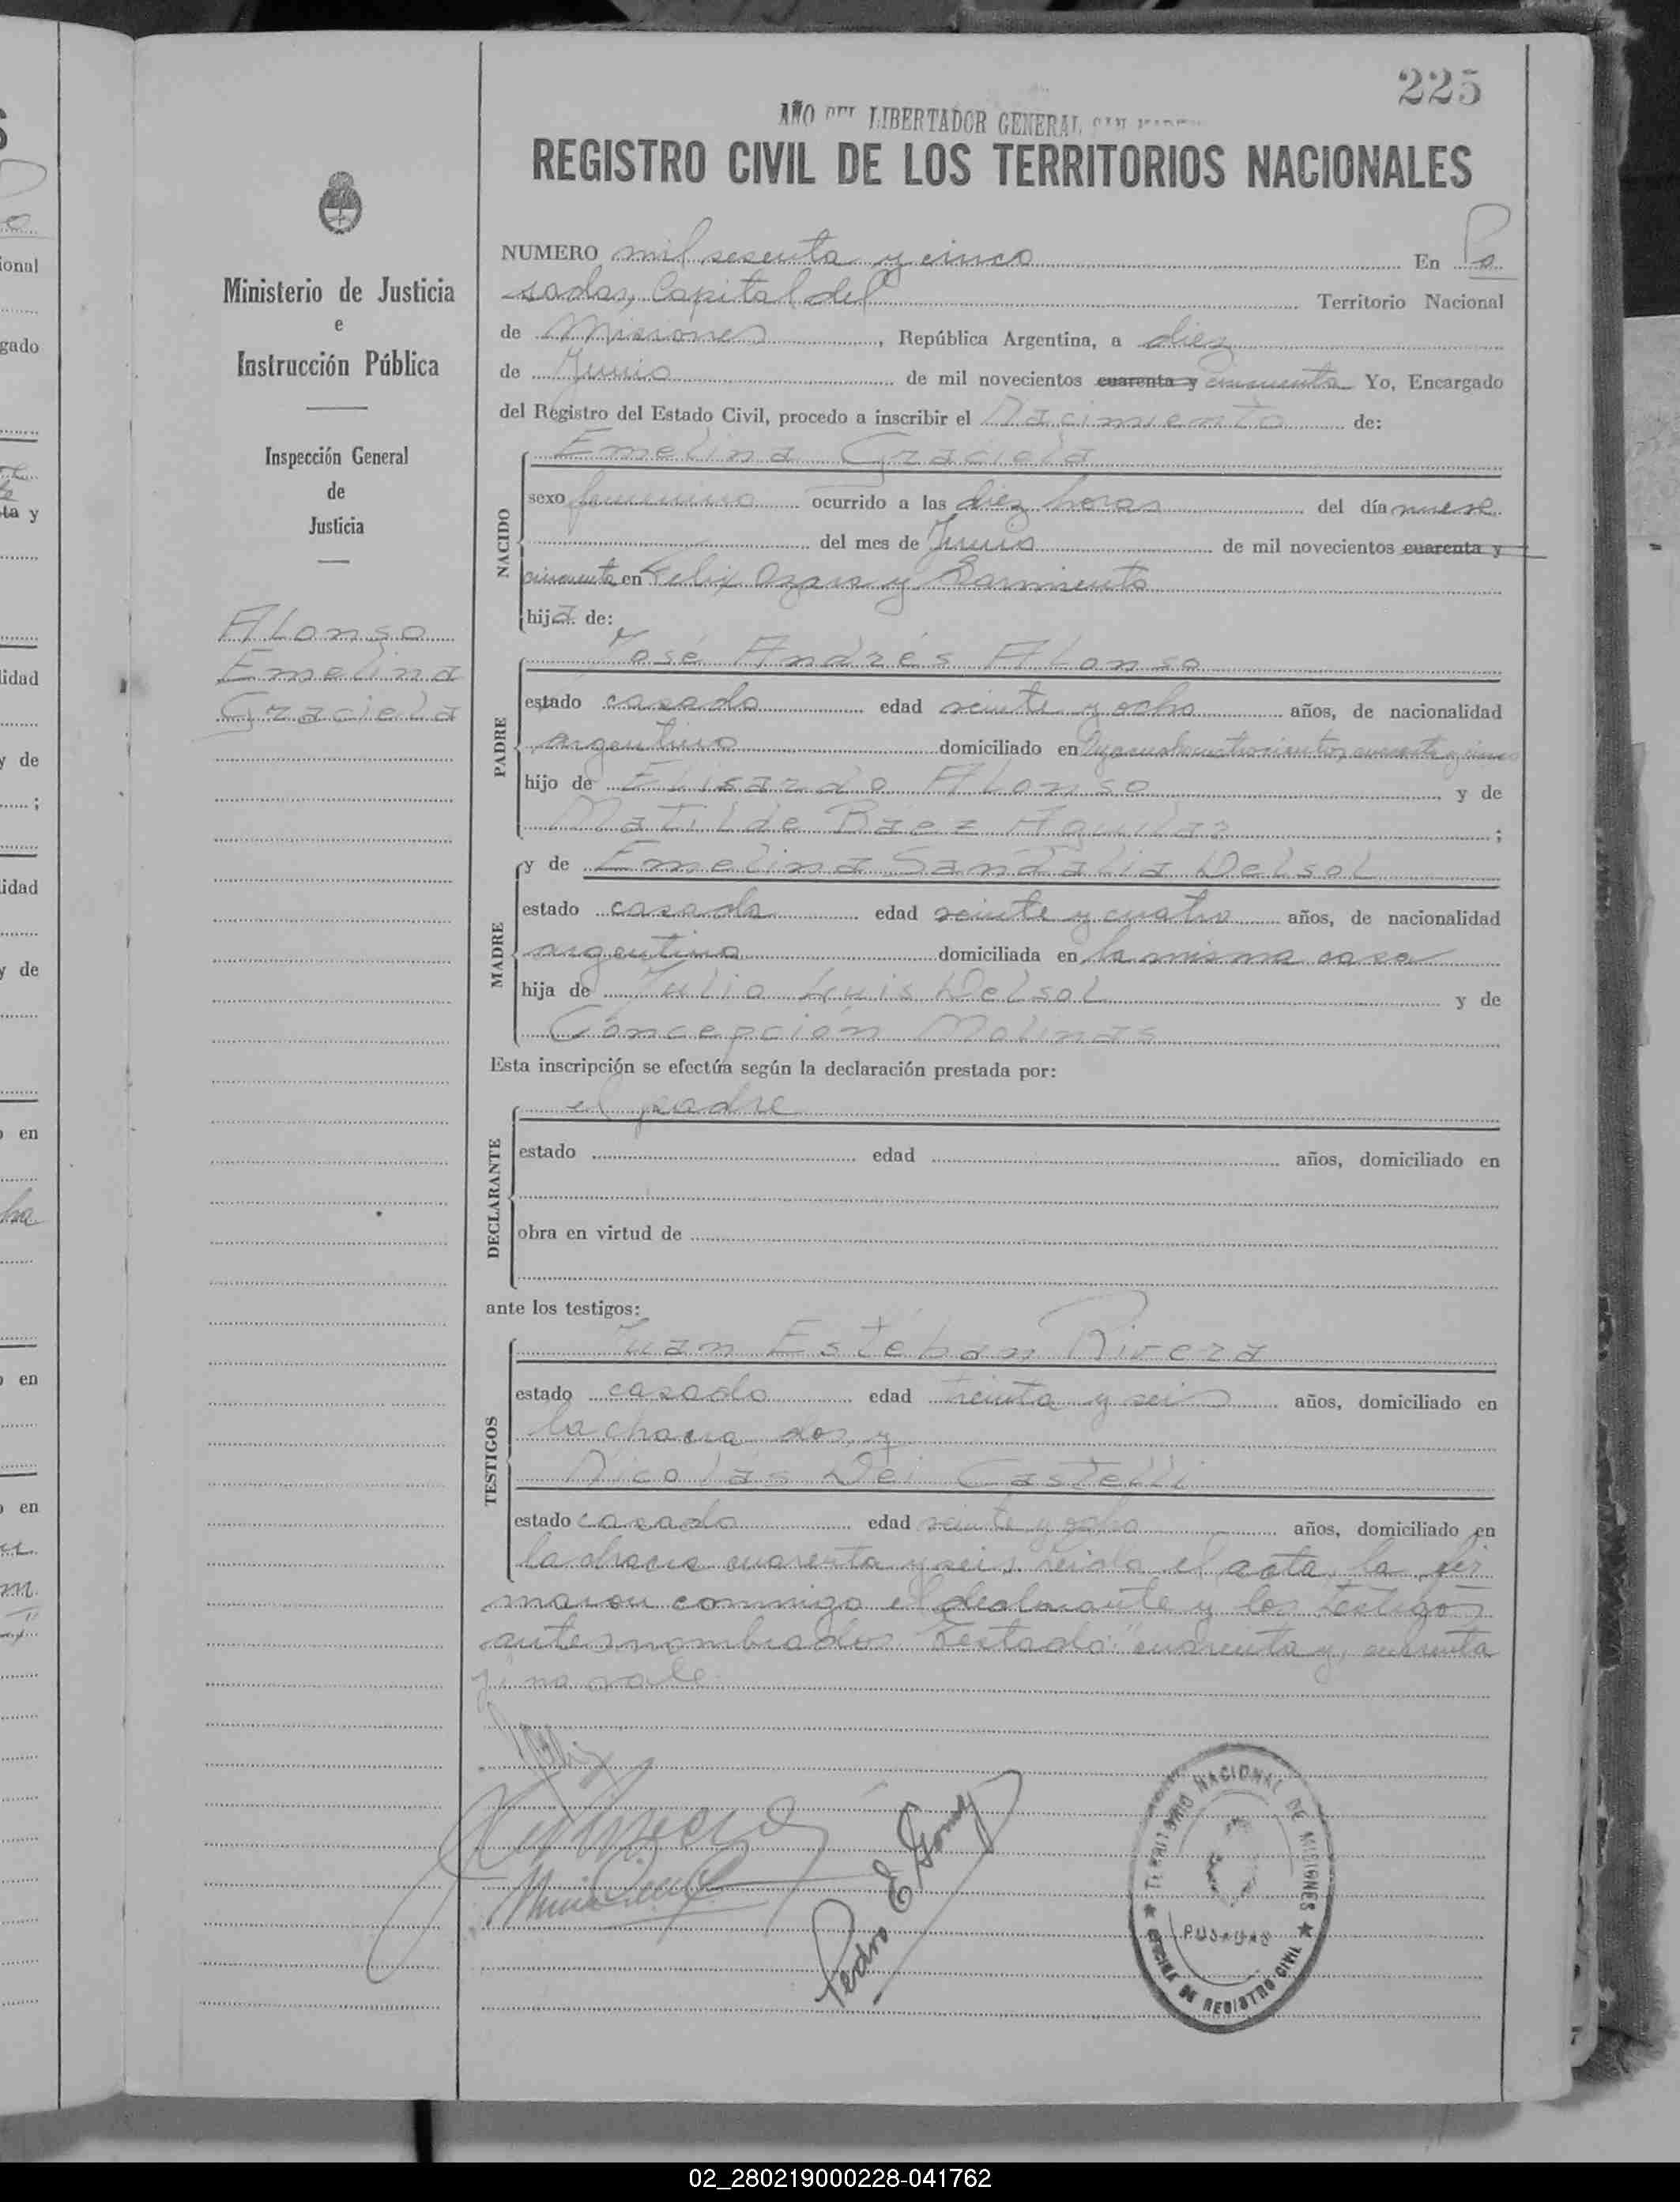 225
AÑO DEL LIBERTADOR GENERAL SAN MARTIN
REGISTRO CIVIL DE LOS TERRITORIOS NACIONALES
Ministerio de Justicia
e
Instrucción Pública
Inspección General
de
Justicia
Alonso
Emelina
Graciela
NUMERO mil sesenta y cinco En Po
sadas, Capital del Territorio Nacional
de Misiones, República Argentina, a diez
de Junio de mil novecientos cuarenta y cincuenta Yo, Encargado
del Registro del Estado Civil, procedo a inscribir el Nacimiento de:
NACIDO
Emelina Graciela
sexo femenino ocurrido a las diez horas del día nueve
del mes de Junio de mil novecientos cuarenta y
cincuenta en Felix Azara y Sarmiento
hija de:
PADRE
José Andrés Alonso
estado casado edad veinte y ocho años, de nacionalidad
argentino domiciliado en cuatrocientos cuarenta y cinco
hijo de Elisardo Alonso y de
Matilde Baez Aguilar;
MADRE
y de Emelina Sandalia Delsol
estado casada edad veinte y cuatro años, de nacionalidad
argentina domiciliada en la misma casa
hija de Julio Luis Delsol y de
Concepción Molinas
Esta inscripción se efectúa según la declaración prestada por:
DECLARANTE
el padre
estado edad años, domiciliado en
obra en virtud de
ante los testigos:
TESTIGOS
Juan Estéban Rivera
estado casado edad treinta y seis años, domiciliado en
la chacra dos, y
Nicolás Dei Castelli
estado casado edad veinte y ocho años, domiciliado en
la chacra cuarenta y seis, leida el acta, la fir
maron conmigo el declarante y los testigos
antes nombrados Testado: "cuarenta y, cuarenta
y" no vale
Pedro E Gomez
TERRITORIO NACIONAL DE MISIONES
POSADAS
OFICINA DE REGISTRO CIVIL
02_280219000228-041762